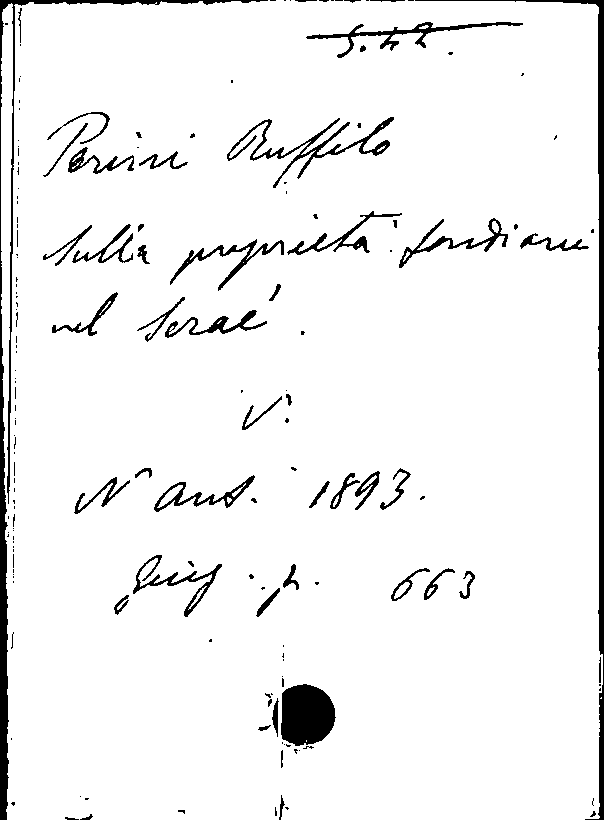 S. 42.
Perini Ruffilo
Sulla proprietà fondiaria
nel Seraé.
V.
N ant. 1893.
Giug. p. 663